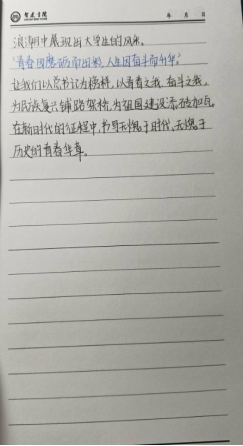 年 月 日
浪潮中展现出大学生的风采。
"青春因磨砺而出彩,人生因奋斗而升华。"
让我们以总书记为榜样,以青春之我,奋斗之我,
为民族复兴铺路架桥,为祖国建设添砖加瓦。
在新时代的征程中,书写无愧于时代,无愧于
历史的青春华章。